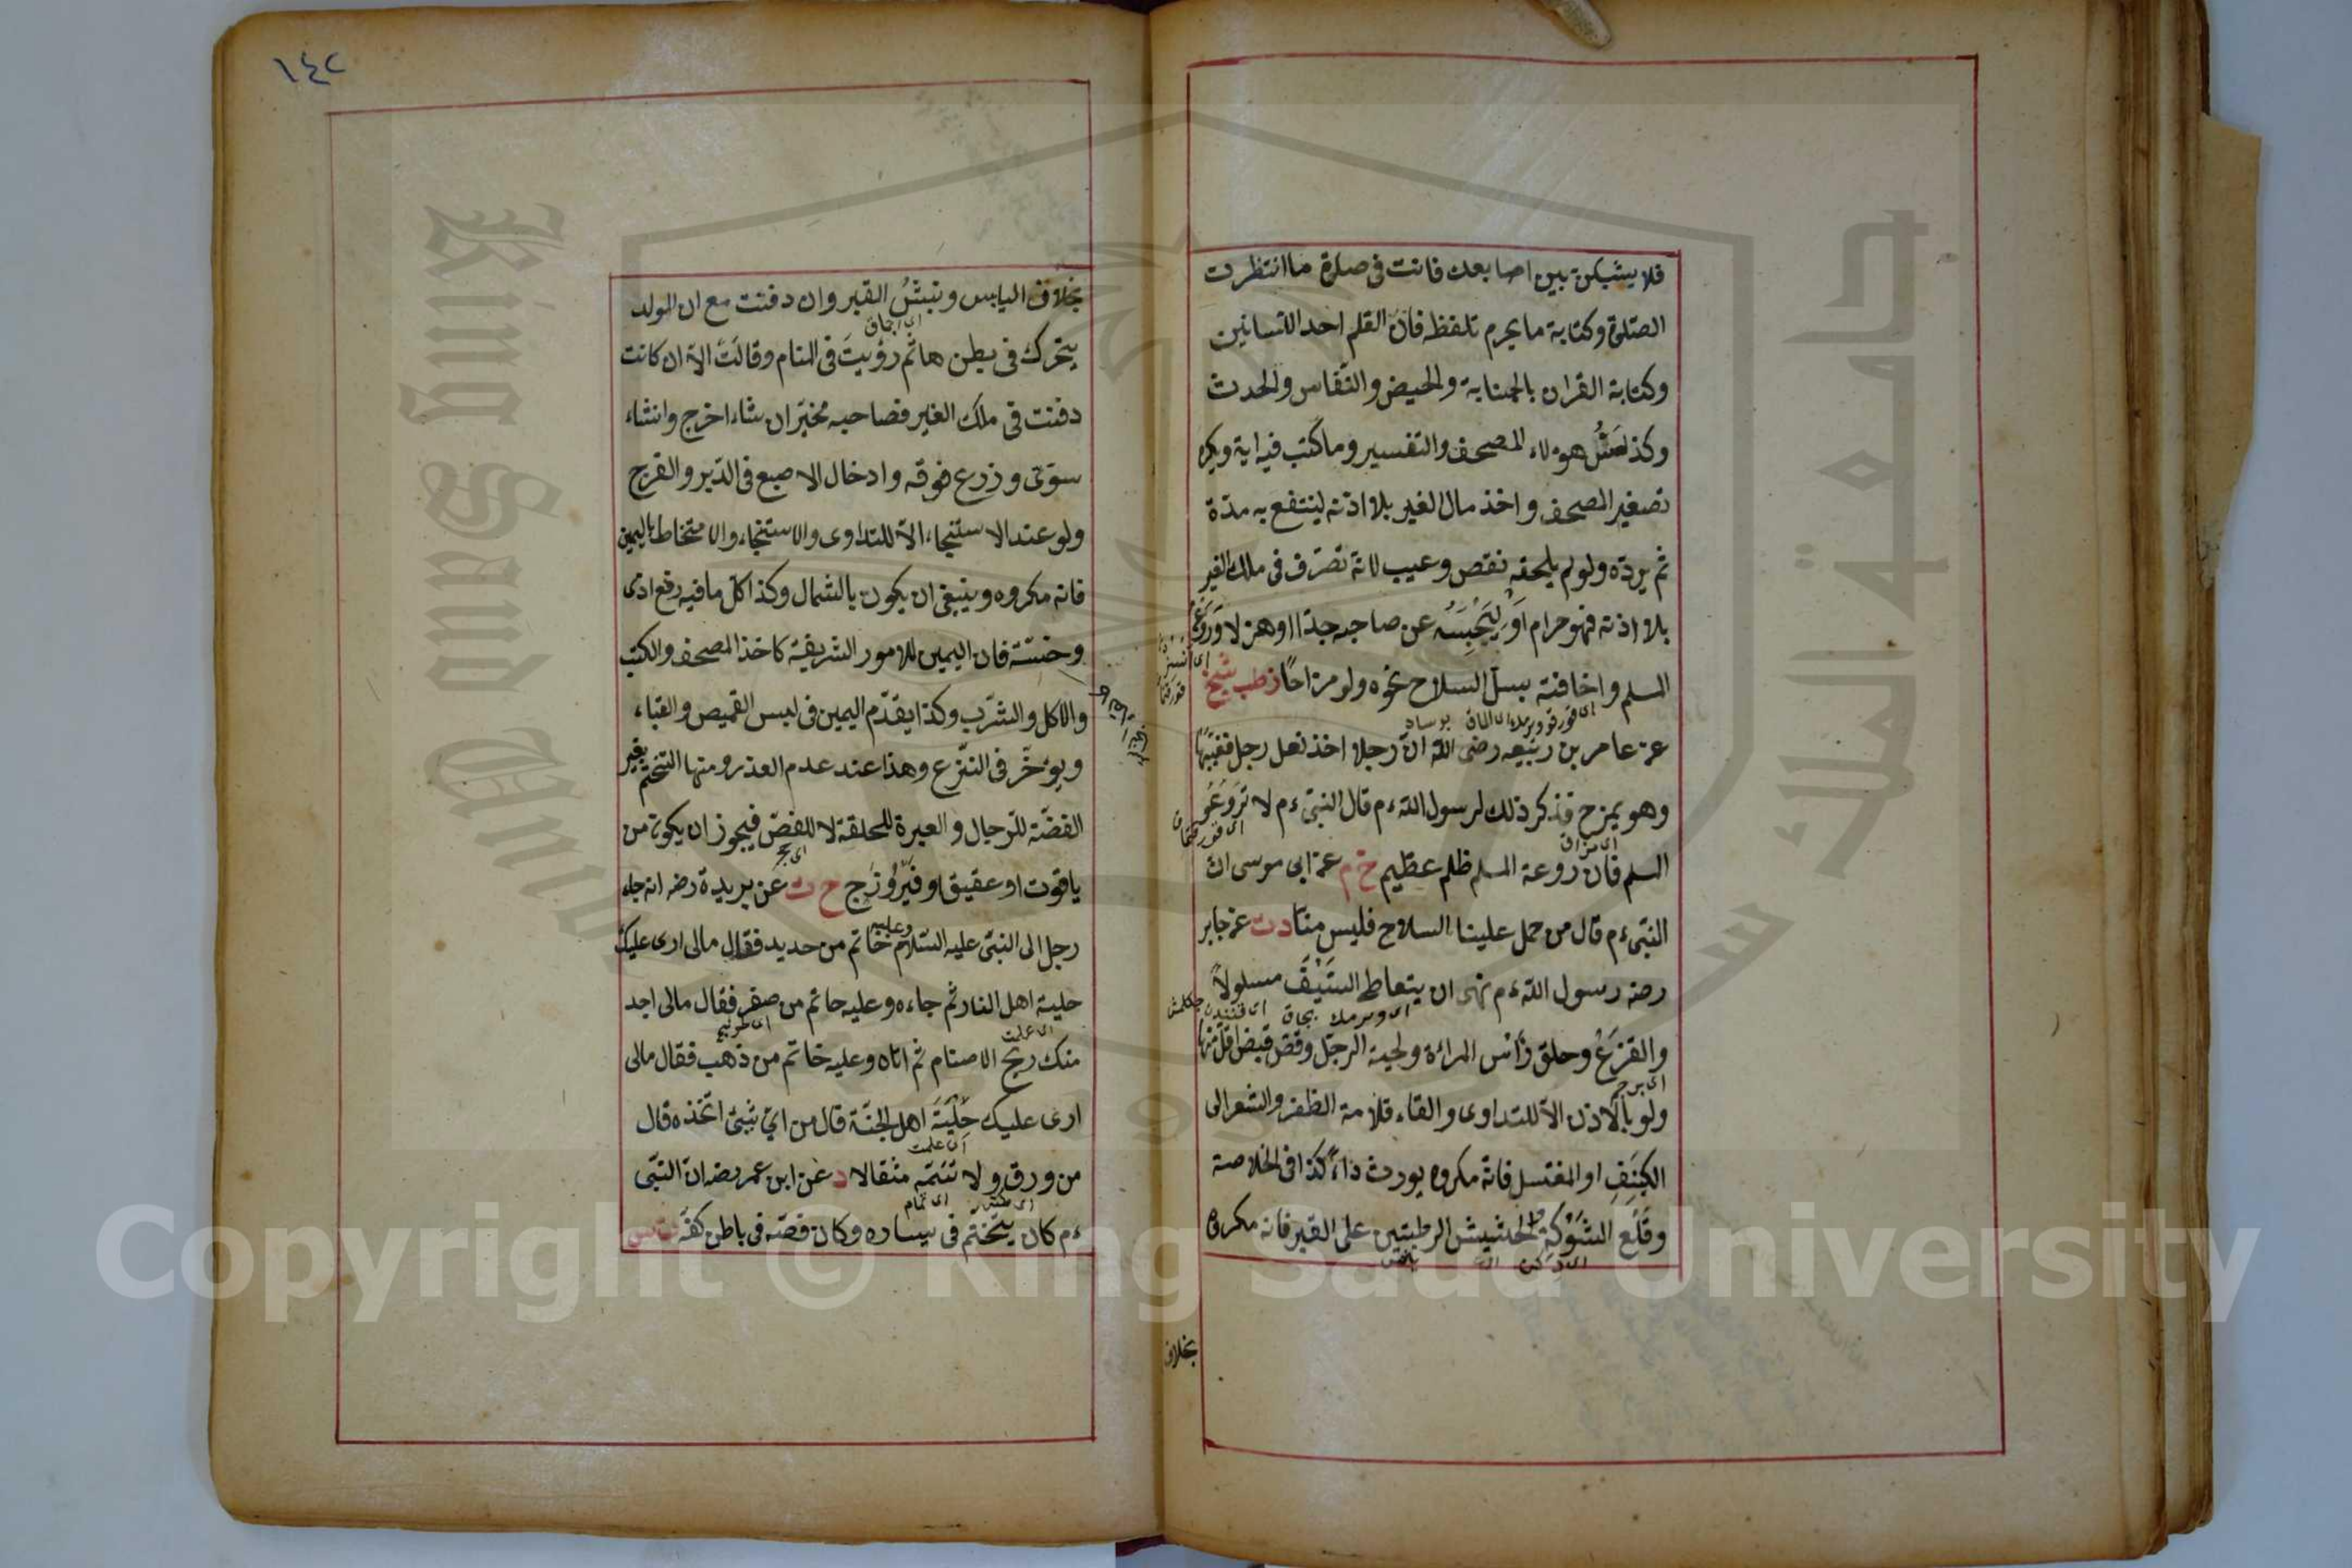 فلا يشبكن بين اصابعك فانت فى صلوة ما انتظرت
الصلوة وكتابة ما يحرم تلفظه فان القلم احد اللسانين
وكتابة القران بالجنابة والحيض والنفاس والحدث
وكذا مس هولاء المصحف والتفسير وما كتب فيه اية ويكره
تصغير المصحف واخذ مال الغير بلا اذنه لينتفع به مدة
ثم يرده ولو لم يلحقه نقص وعيب لانه تصرف فى ملك الغير
بلا اذنه فهو حرام او ليحبسه عن صاحبه جدا او هزلا وروع
المسلم واخافته بسل السلاح نحوه ولو مزاحًا ز طب شيخ
عن عامر بن ربيعه رضى الله ان رجلا اخذ نعل رجل فغيبها
وهو يمزح فذكر ذلك لرسول الله ءم قال النبى ءم لا تروعو
المسلم فان روعة المسلم ظلم عظيم خ م عن ابى موسى ان
النبى ءم قال من حمل علينا السلاح فليس منا د ت عن جابر
رضه رسول الله ءم نهى ان يتعاطى السيف مسلولاً
والقزع وحلق رأس المراءة ولحية الرجل وقص قبض اقل منها
ولو بالاذن الا للتداوى والقاء قلامة الظفر والشعر الى
الكنف او المغتسل فانه مكروه يورث داءً كذا فى الخلاصة
وقلع الشوكة والحشيش الرطبتين على القبر فانه مكروه
بخلاف
١٤٢
بخلاف اليابس ونبش القبر وان دفنت مع ان الولد
يتحرك فى بطن ها ثم رؤيت فى المنام وقالت الا ان كانت
دفنت فى ملك الغير فصاحبه مخير ان شاء اخرج وانشاء
سوى وزرع فوقه وادخال الاصبع فى الدبر والفرج
ولو عند الاستنجاء الا للتداوى والاستنجاء والامتخاط باليمين
فانه مكروه وينبغى ان يكون بالشمال وكذا كل ما فيه رفع اذى
وخسة فان اليمين للامور الشريفة كاخذ المصحف والكتب
والاكل والشرب وكذا يقدم اليمين فى لبس القميص والقباء
ويؤخر فى النزع وهذا عند عدم العذر ومنها التختم بغير
الفضة للرجال والعبرة للحلقة لا للفص فيجوز ان يكون من
ياقوت او عقيق او فيروزج ح ت عن بريدة رضه انه جاء
رجل الى النبى عليه السلام وعليه خاتم من حديد فقال مالى ارى عليك
حلية اهل النار ثم جاءه وعليه خاتم من صفر فقال مالى اجد
منك ريح الاصنام ثم اتاه وعليه خاتم من ذهب فقال مالى
ارى عليك حلية اهل الجنة قال من اي شئ اتخذه قال
من ورق ولا تتمه مثقالا د عن ابن عمر رضه ان النبى
ءم كان يتختم فى يساره وكان فصه فى باطن كفه
King Saud University
جامعة الملك سعود
Copyright © King Saud University